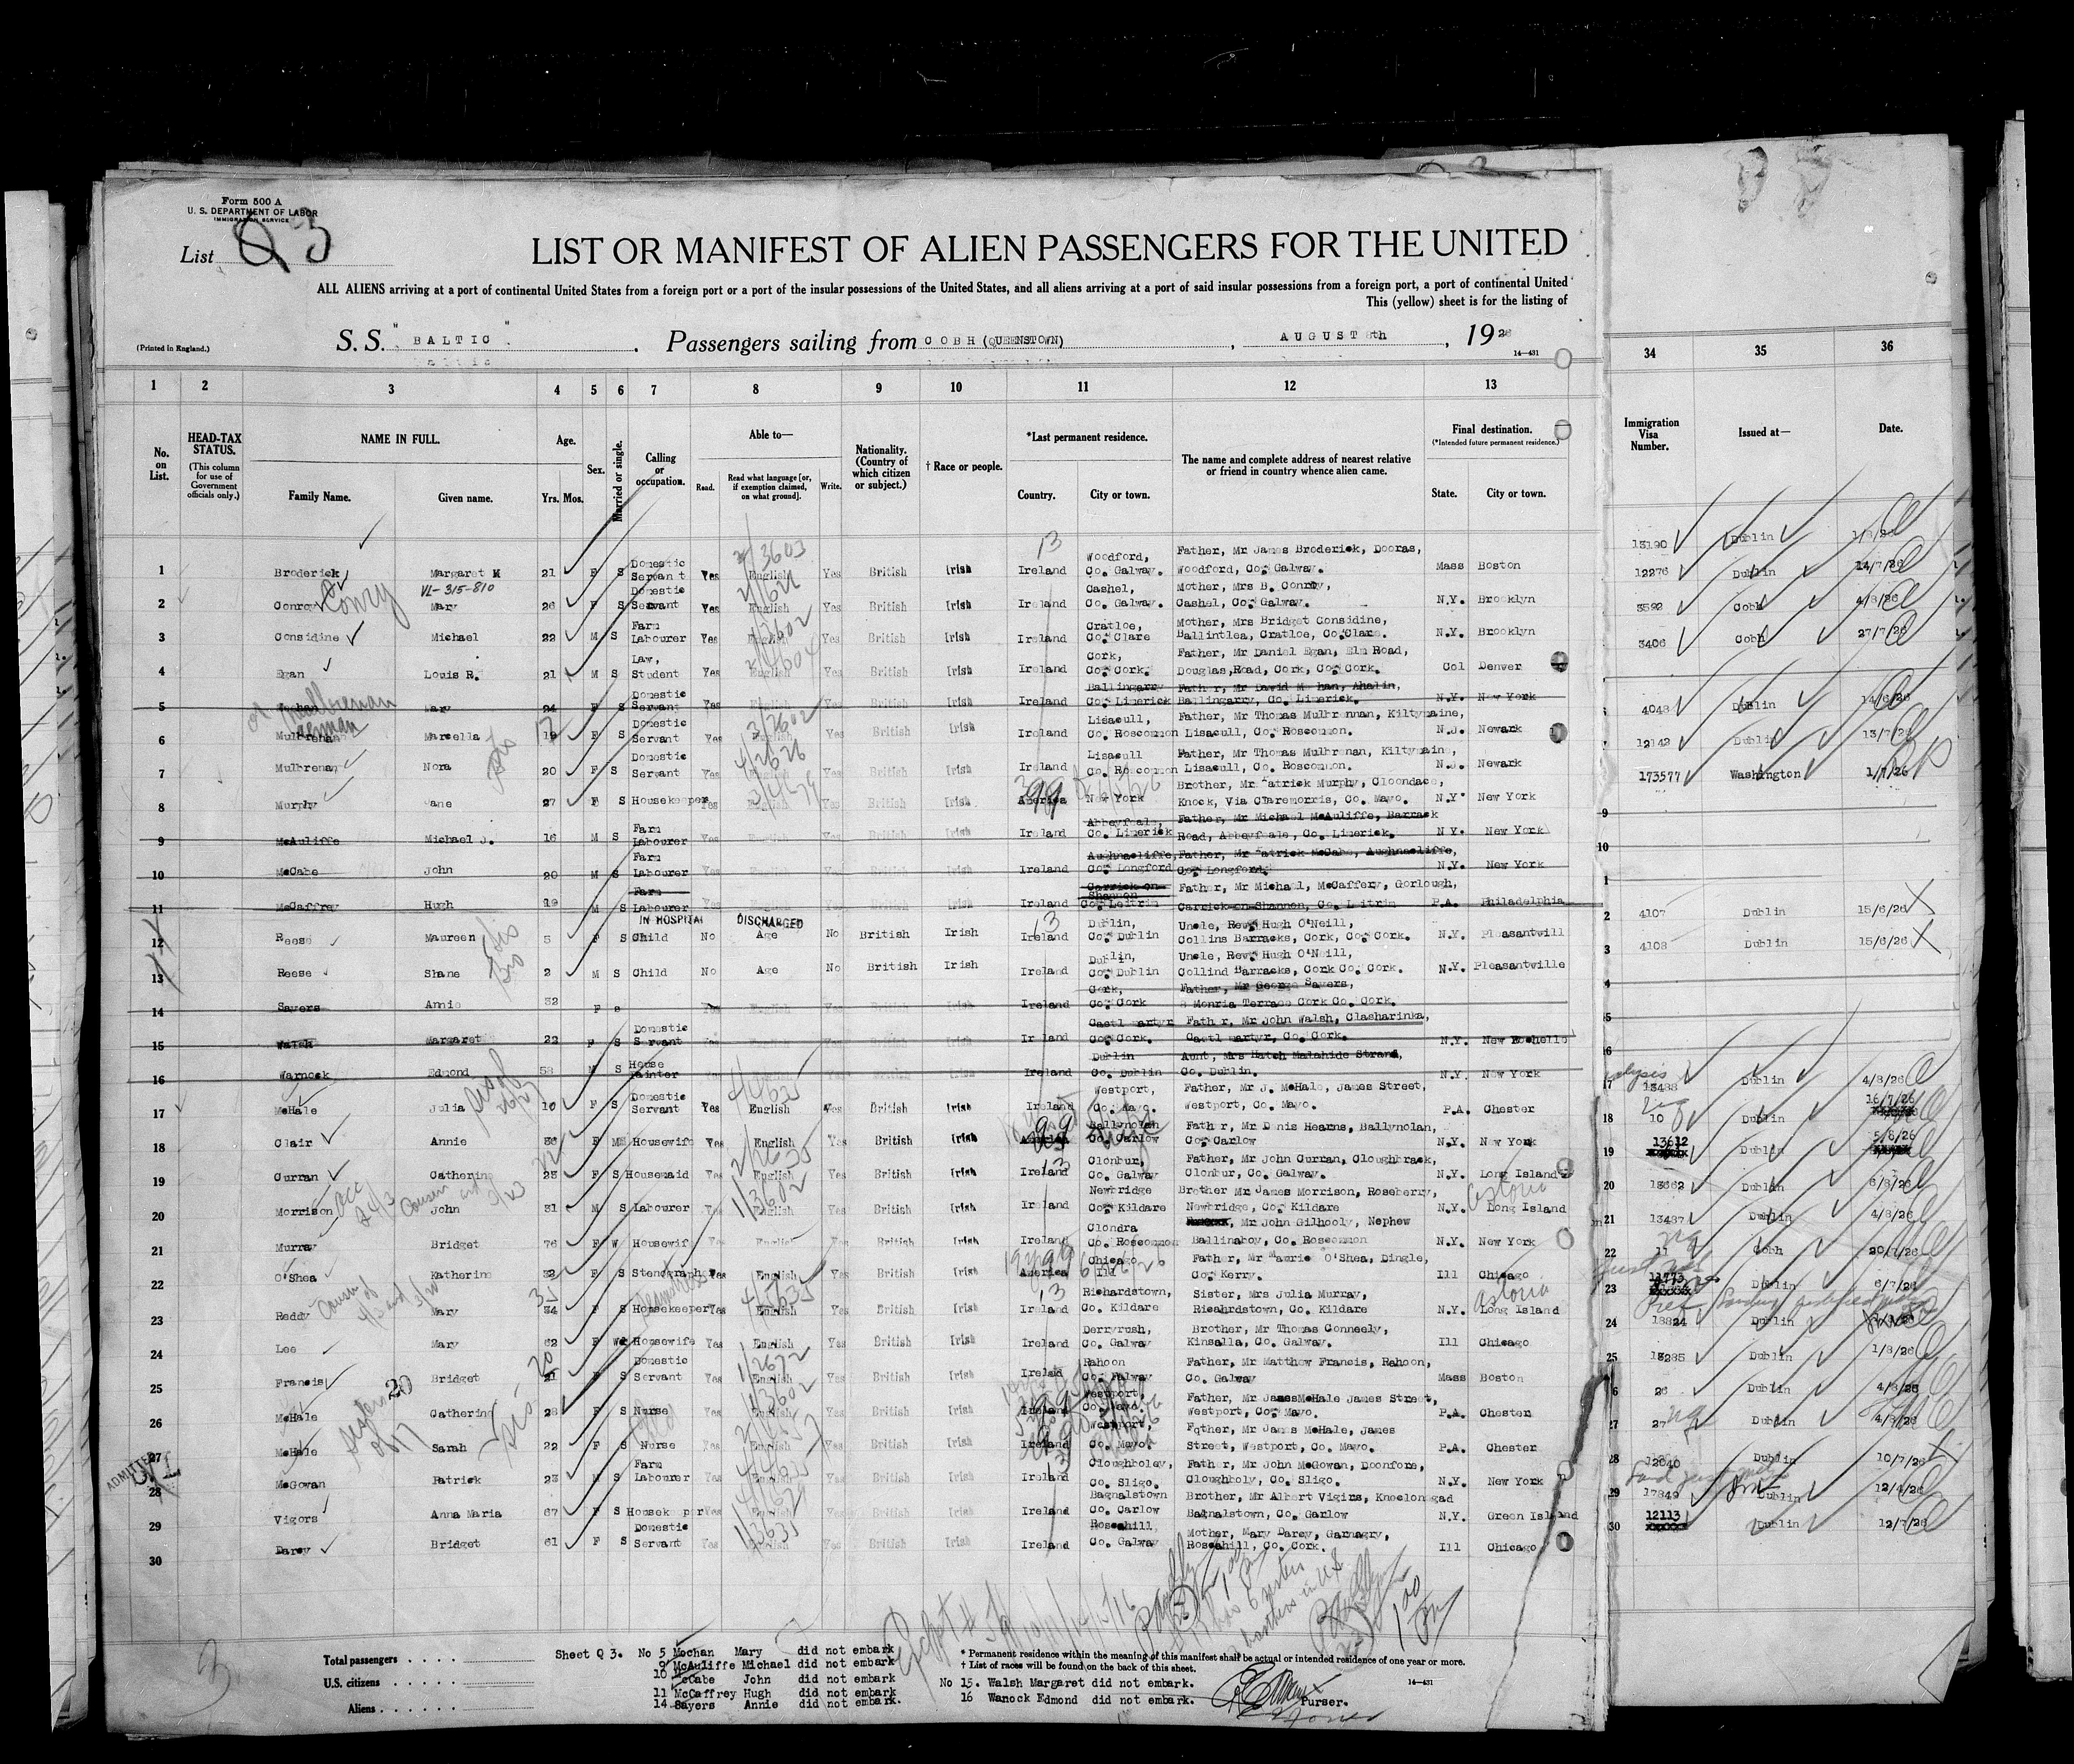 Form 500 A
U. S. DEPARTMENT OF LABOR
IMMIGRATION SERVICE
List Q 3
LIST OR MANIFEST OF ALIEN PASSENGERS FOR THE UNITED
ALL ALIENS arriving at a port of continental United States from a foreign port or a port of the insular possessions of the United States, and all aliens arriving at a port of said insular possessions from a foreign port, a port of continental United
This (yellow) sheet is for the listing of
(Printed in England.)
S. S. "BALTIC". Passengers sailing from COBH (QUEENSTOWN), AUGUST 8th, 1926
14—431
1 2 3 4 5 6 7 8 9 10 11 12 13 34 35 36
No. on List.
HEAD-TAX STATUS.
(This column for use of Government officials only.)
NAME IN FULL.
Family Name. Given name.
Age.
Yrs. Mos.
Sex.
Married or single.
Calling or occupation.
Able to—
Read. Read what language [or, if exemption claimed, on what ground]. Write.
Nationality. (Country of which citizen or subject.)
† Race or people.
*Last permanent residence.
Country. City or town.
The name and complete address of nearest relative or friend in country whence alien came.
Final destination.
(*Intended future permanent residence.)
State. City or town.
Immigration Visa Number.
Issued at—
Date.
13190 Dublin
1 Broderick Margaret M 21 F S Domestic Servant Yes English Yes British Irish Ireland Woodford, Co. Galway. Father, Mr James Broderick, Dooras, Woodford, Co. Galway. Mass Boston 12276 Dublin 14/7/26
VL-315-810
2 Conroy Conry Mary 26 F S Domestic Servant Yes English Yes British Irish Ireland Cashel, Co. Galway. Mother, Mrs B. Conroy, Cashel, Co. Galway. N.Y. Brooklyn 3592 Cobh 4/8/26
3 Considine Michael 22 M S Farm Labourer Yes English Yes British Irish Ireland Cratloe, Co. Clare Mother, Mrs Bridget Considine, Ballintlea, Cratloe, Co. Clare. N.Y. Brooklyn 3406 Cobh 27/7/26
4 Egan Louis R. 21 M S Law, Student Yes English Yes British Irish Ireland Cork, Co. Cork. Father, Mr Daniel Egan, Elm Road, Douglas, Road, Cork, Co. Cork. Col Denver
5 Mary 24 F S Domestic Servant Yes English Yes British Irish Ireland Ballingarry Co. Limerick Father, Mr David Mehan, Ahalin, Ballingarry, Co. Limerick. N.Y. New York 4048 Dublin 14/6/26
6 Mulbrenan Marcella 19 F S Domestic Servant Yes English Yes British Irish Ireland Lisacull, Co. Roscommon Father, Mr Thomas Mulbrennan, Kiltymaine, Lisacull, Co. Roscommon. N.J. Newark 12142 Dublin 13/7/26
7 Mulbrenan Nora 20 F S Domestic Servant Yes English Yes British Irish Ireland Lisacull Co. Roscommon Father, Mr Thomas Mulbrenan, Kiltymaine, Lisacull, Co. Roscommon. N.J. Newark 173577 Washington 1/7/26
8 Murphy Jane 27 F S Housekeeper Yes English Yes British Irish America New York Brother, Mr Patrick Murphy, Cloondace, Knock, Via Claremorris, Co. Mayo. N.Y. New York
9 McAuliffe Michael J. 16 M S Farm Labourer Yes English Yes British Irish Ireland Abbeyfeale, Co. Limerick Father, Mr Michael McAuliffe, Barrack Road, Abbeyfeale, Co. Limerick. N.Y. New York
10 McCabe John 20 M S Farm Labourer Irish Ireland Aughnacliffe, Co. Longford Father, Mr Patrick McCabe, Aughnacliffe, Co. Longford. N.Y. New York
11 McCaffrey Hugh 19 M S Farm Labourer Irish Ireland Carrick on Shannon Co. Leitrim Father, Mr Michael, McCaffery, Gorlough, Carrick-on-Shannon, Co. Leitrim P.A. Philadelphia
IN HOSPITAL DISCHARGED
12 Reese Maureen 5 F S Child No Age No British Irish Ireland Dublin, Co. Dublin Uncle, Rev. Hugh O'Neill, Collins Barracks, Cork, Co. Cork. N.Y. Pleasantvill 4107 Dublin 15/6/26
13 Reese Shane 2 M S Child No Age No British Irish Ireland Dublin, Co. Dublin Uncle, Rev. Hugh O'Neill, Collind Barracks, Cork Co. Cork. N.Y. Pleasantville 4108 Dublin 15/6/26
14 Sayers Annie 32 F S Yes English Irish Ireland Cork, Co. Cork Father, Mr George Sayers, 8 Monria Terrace Cork Co. Cork.
15 Walsh Margaret 22 F S Domestic Servant Irish Ireland Castlemartyr Co. Cork. Father, Mr John Walsh, Clasharinka, Castlemartyr, Co. Cork. N.Y. New Rochelle
16 Warnock Edmond 53 M S House Painter Irish Ireland Dublin Co. Dublin Aunt, Mrs Hatch Malahide Strand, Co. Dublin. N.Y. New York
17 McHale Julia 19 F S Domestic Servant Yes English Yes British Irish Ireland Westport, Co. Mayo. Father, Mr J. McHale, James Street, Westport, Co. Mayo. P.A. Chester 13488 Dublin 4/8/26
18 Clair Annie 36 F M Housewife Yes English Yes British Irish America Ballynolan Co. Carlow Father, Mr Denis Hearns, Ballynolan, Co. Carlow N.Y. New York 10 Dublin 16/7/26
19 Curran Catherine 25 F S Housemaid Yes English Yes British Irish Ireland Clonbur, Co. Galway Father, Mr John Curran, Cloughbrack, Clonbur, Co. Galway. N.Y. Long Island 13612 Dublin 5/8/26
Astoria
20 Morrison John 31 M S Labourer Yes English Yes British Irish Ireland Newbridge Co. Kildare Brother Mr James Morrison, Roseberry, Newbridge, Co. Kildare N.Y. Long Island 13662 Dublin 6/8/26
21 Murray Bridget 76 F W Housewife Yes English Yes British Irish Ireland Clondra Co. Roscommon Mr John Gilhooly, Nephew Ballinaboy, Co. Roscommon N.Y. New York 13487 Dublin 4/8/26
22 O'Shea Katherine 32 F S Stenographer Yes English Yes British Irish America Chicago Ill Father, Mr Maurice O'Shea, Dingle, Co. Kerry. Ill Chicago 11 Cobh 20/7/26
Astoria
23 Reddy Mary 34 F S Housekeeper Yes English Yes British Irish Ireland Richardstown, Co. Kildare Sister, Mrs Julia Murray, Richardstown, Co. Kildare N.Y. Long Island 11773 Dublin 6/7/26
24 Lee Mary 62 F Wd Housewife Yes English Yes British Irish Ireland Derryrush, Co. Galway Brother, Mr Thomas Conneely, Kinsalla, Co. Galway. Ill Chicago 18824 Dublin
25 Francis Bridget 21 F S Domestic Servant Yes English Yes British Irish Ireland Rahoon Co. Galway Father, Mr Matthew Francis, Rahoon, Co. Galway Mass Boston 13285 Dublin 1/8/26
26 McHale Catherine 28 F S Nurse Yes English Yes British Irish Ireland Westport, Co. Mayo. Father, Mr JamesMcHale James Street, Westport, Co. Mayo. P.A. Chester 26 Dublin 4/8/26
27 McHale Sarah 22 F S Nurse Yes English Yes British Irish Ireland Westport, Co. Mayo. Father, Mr James McHale, James Street, Westport, Co. Mayo. P.A. Chester 27 Dublin 4/8/26
ADMITTED
28 McGowan Patrick 23 M S Farm Labourer Yes English Yes British Irish Ireland Cloughboley, Co. Sligo. Father, Mr John McGowan, Doonfore, Cloughboly, Co. Sligo. N.Y. New York 12040 Dublin 10/7/26
29 Vigors Anna Maria 67 F S Housekeeper Yes English Yes British Irish Ireland Bagnalstown Co. Carlow Brother, Mr Albert Vigirs, Bagnalstown, Co. Carlow N.Y. Green Island 17849 Dublin 12/4/26
30 Darcy Bridget 61 F S Domestic Servant Yes English Yes British Irish Ireland Rosehill, Co. Galway Mother, Mary Darcy, Garnagry, Rosehill, Co. Cork. Ill Chicago 12113 Dublin 12/7/26
Total passengers
U.S. citizens
Aliens
Sheet Q 3. No 5 Mechan Mary did not embark
9 McAuliffe Michael did not embark
10 McCabe John did not embark
11 McCaffrey Hugh did not embark
14 Sayers Annie did not embark.
* Permanent residence within the meaning of this manifest shall be actual or intended residence of one year or more.
† List of races will be found on the back of this sheet.
No 15. Walsh Margaret did not embark.
16 Wanock Edmond did not embark.
Purser.
14—431